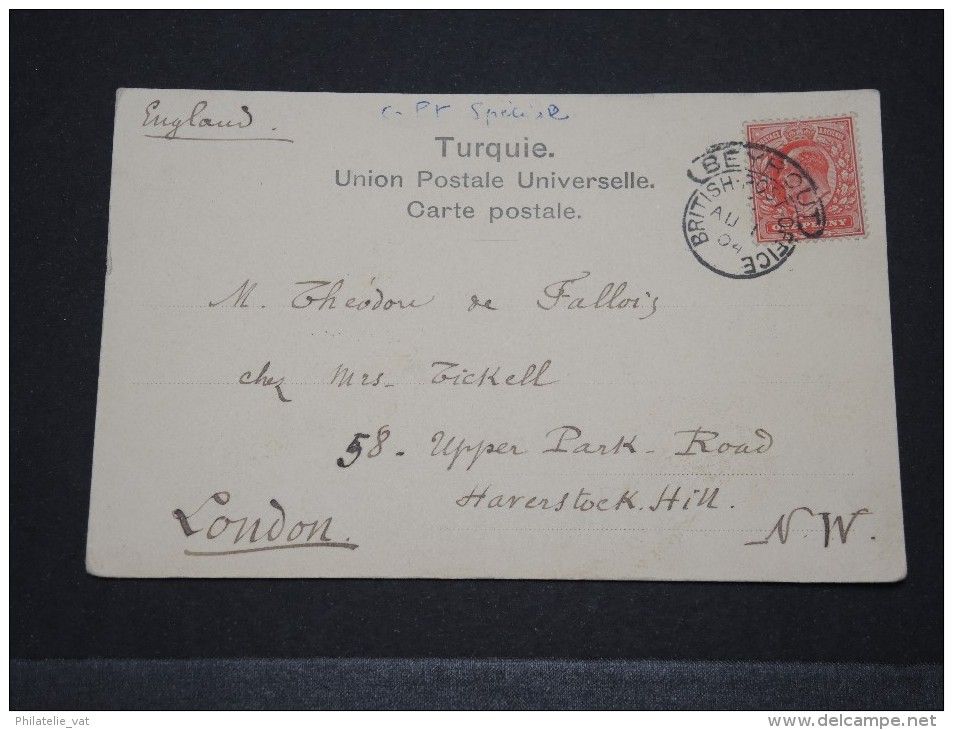 England.
Turquie.
Union Postale Universelle.
Carte postale.
BEYROUT
BRITISH POST OFFICE
AU 1
04
ONE PENNY
M. Théodore de Fallois
chez Mrs- Tickell
58- Upper Park- Road
Haverstock Hill.
London.
N.W.
Philatelie_vat
www.delcampe.net